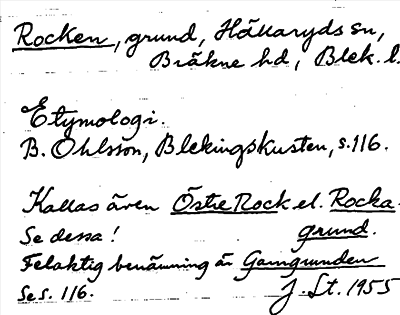 Rocken, grund, Hällaryds sn,
Bräkne hd, Blek. l.
Etymologi.
B. Ohlsson, Blekingskusten, s. 116.
Kallas även Östre Rock el. Rocka-
Se dessa! grund.
Felaktig benämning är Gamgrunden
Se s. 116. J. St. 1955